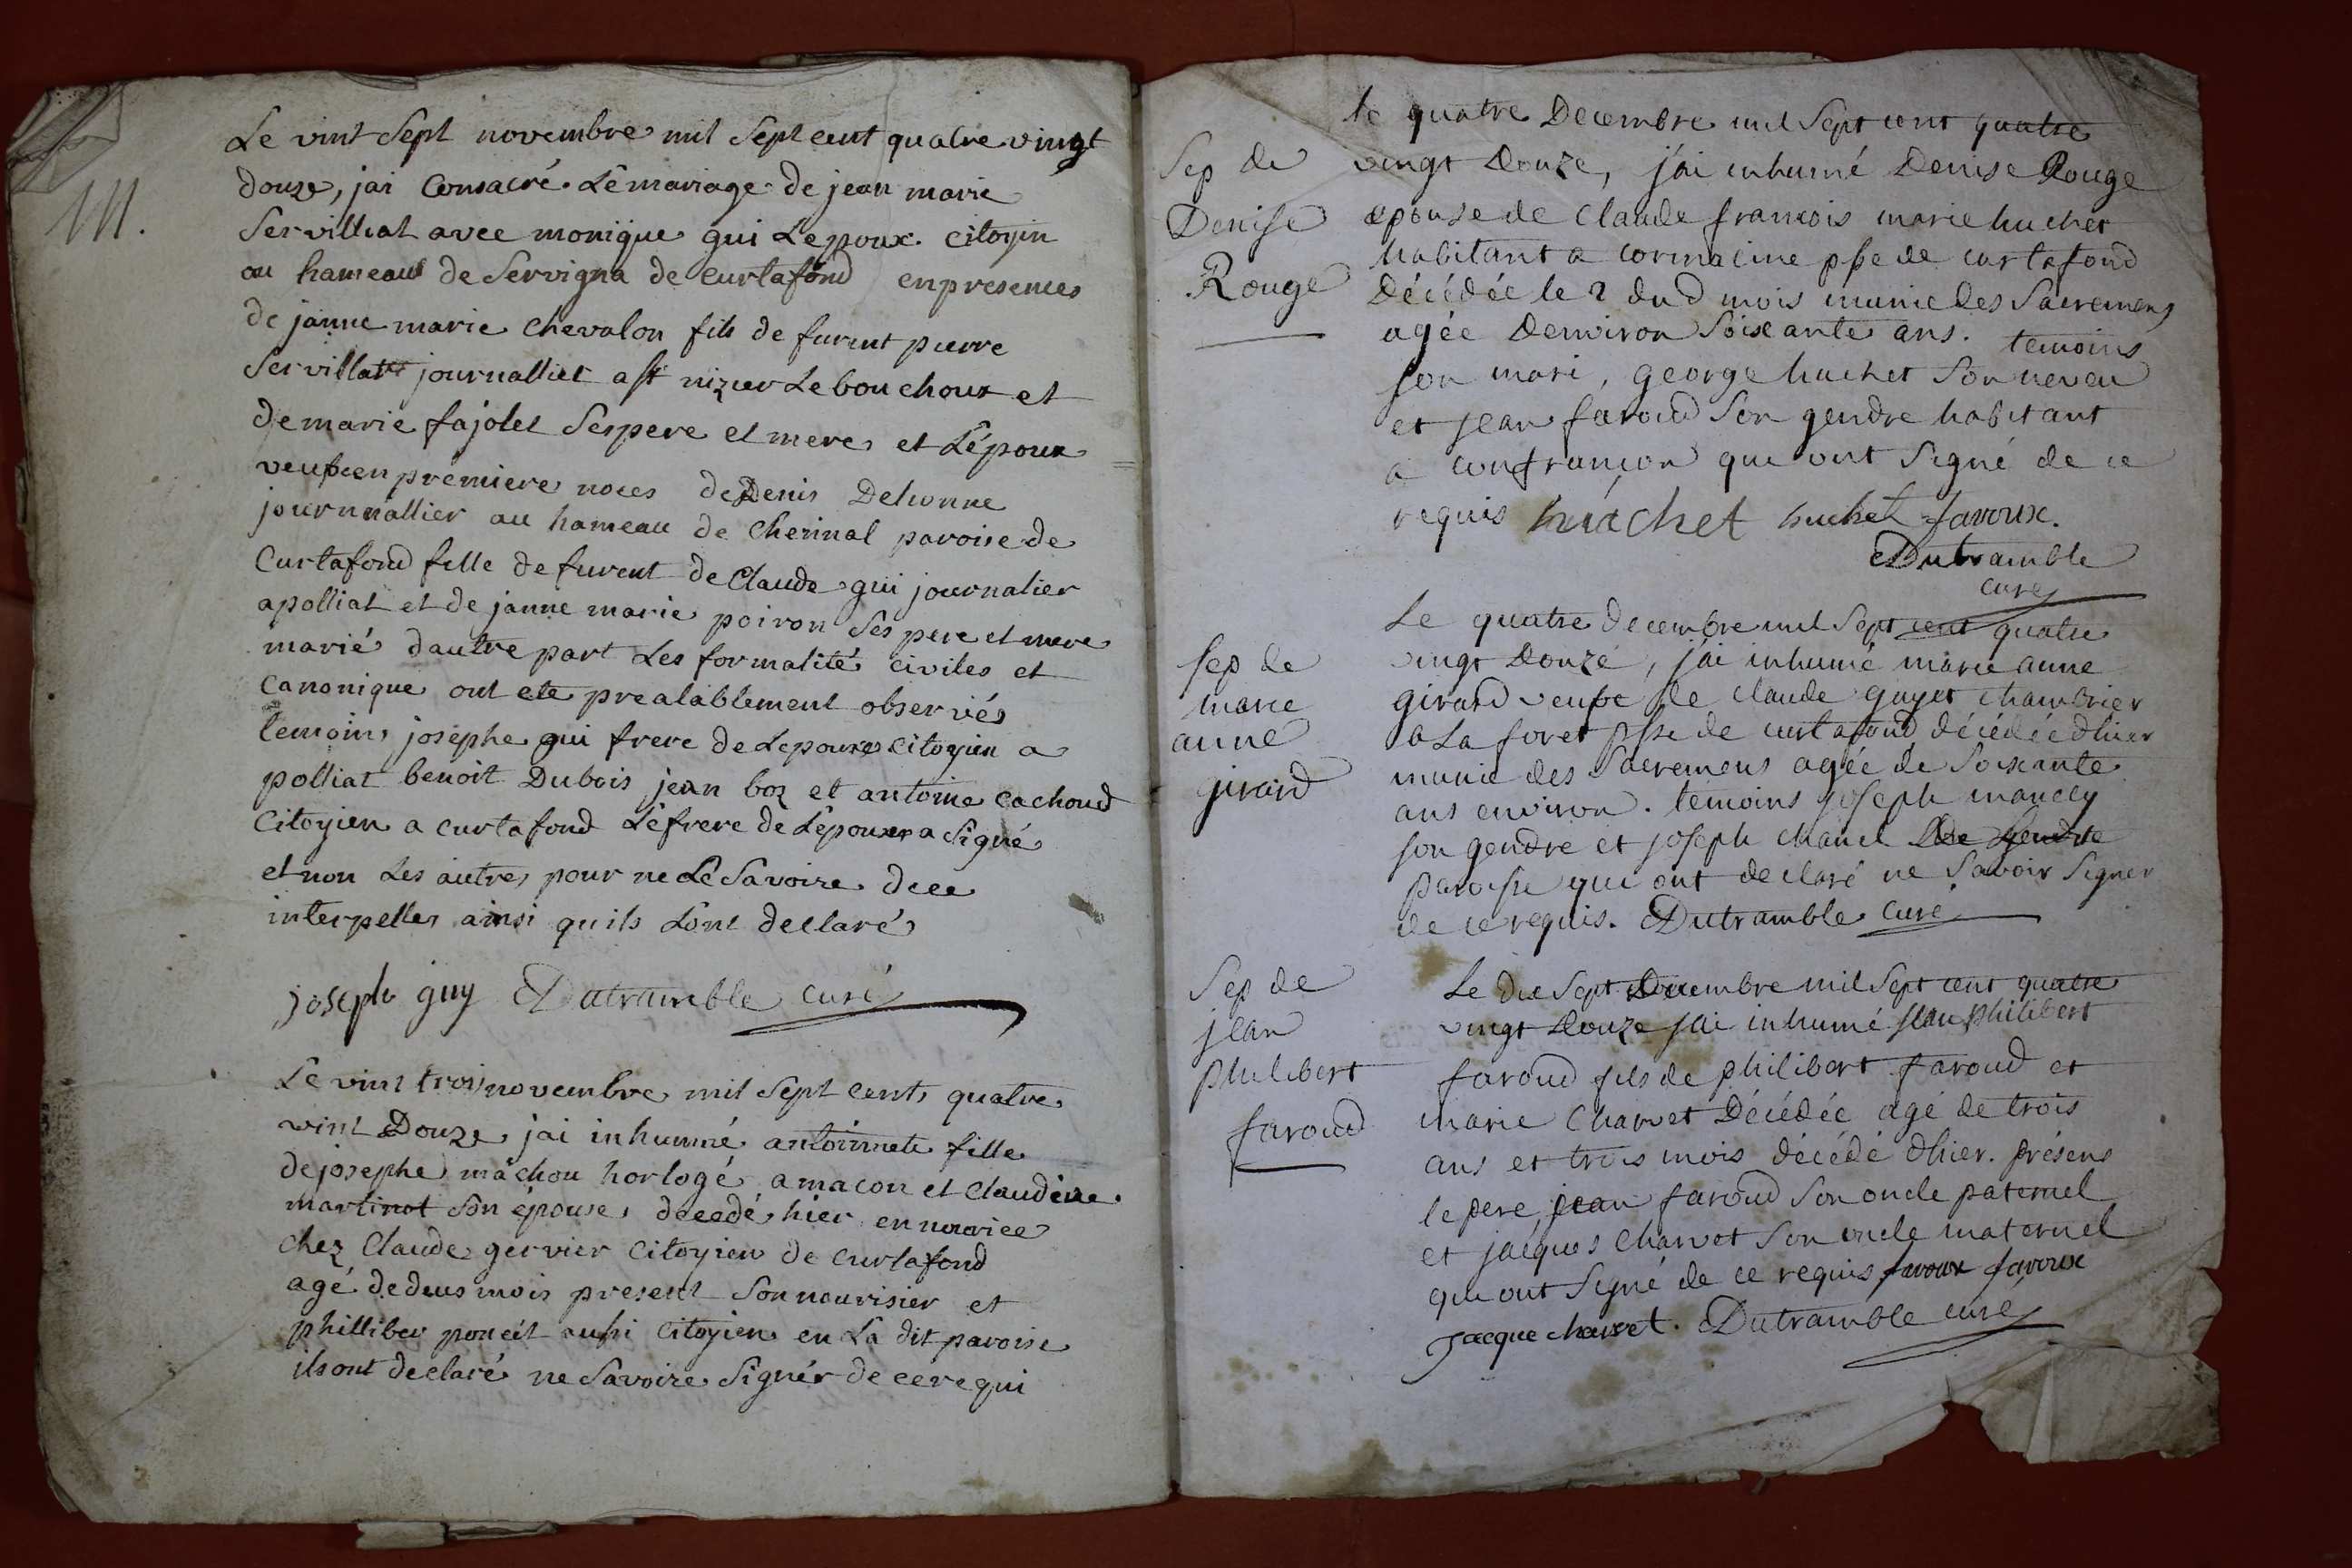 M.
Le vint Sept novembre mil Sept cent quatre vingt
douze, jai Consacré Le mariage de jean marie
Servilliat avec monique gui Lepoux citoyin
au hameaus de Servigna de curtafond enpresences
de janne marie chevalon fils de furent pierre
Servillat journalliet a st nizier Le bouchoux et
de marie fajolet Ses pere et mere et Lépoux
veufve en premiere noces de Denis Delionne
journnallier au hameau de Cherinal paroise de
Curtafond fille de furent de Claude gui journalier
a polliat et de janne marie poiron Ses pere et mere
marié dautre part Les formalité civiles et
Canonique ont ete prealablement observés
temoins josephe gui frere de Lepouxe citoyien a
polliat benoit Dubois jean boz et antoine cachoud
Citoyien a curtafond Le frere de Lépouxe a Signé
et non Les autres pour ne Le Savoire de ce
interpelles ainsi quils Lont declaré
joseph guy Dutramble curé
Le vint trois novembre mil Sept cents quatre
vint Douze jai inhumé antoinnete fille
de josephe mâchou horlogé a macon et claudine
martinot Son épouse decedé hier en nourice
chez Claude gervier Citoyien de curtafond
agé de deus mois present Son nourisier et
philliber poncét aussi Citoyien en La dit paroise
ils ont declaré ne Savoire Signér de ce requi
le quatre Decembre mil Sept cent quatre
Sep de vingt Douze, j'ai inhumé Denise Rouge
Denise epouse de claude francois marie huchet
habitant a cormacine psse de curtafond
Rouge Décédée le 2 dud mois munie des Sacremens
agée Denviron Soixante ans. temoins
son mari, george huchet Son neveu
et jean faroud Son gendre habitant
a confrançon qui ont Signé de ce
requis huchet huchet faroux.
Dutramble
curé
Le quatre Decembre mil Sept cent quatre
Sep de vingt Douze, j'ai inhumé marie anne
marie girard veufve de claude guyet chambrier
anne a La foret psse de curtafond décédée dhier
girard munie des Sacremens agée de Soixante
ans environ. temoins joseph mancey
son gendre et joseph chanel
paroisse qui ont declaré ne Savoir Signer
de ce requis. Dutramble curé
Sep de Le dix Sept Decembre mil Sept cent quatre
jean vingt Douze jai inhumé jean philibert
philibert faroud fils de philibert faroud et
faroud marie Charvet Décédée agé de trois
ans et trois mois décédé dhier. présens
le pere, jean faroud Son oncle paternel
et jacques charvet Son oncle maternel
qui ont Signé de ce requis faroux faroux
jacque charvet. Dutramble curé